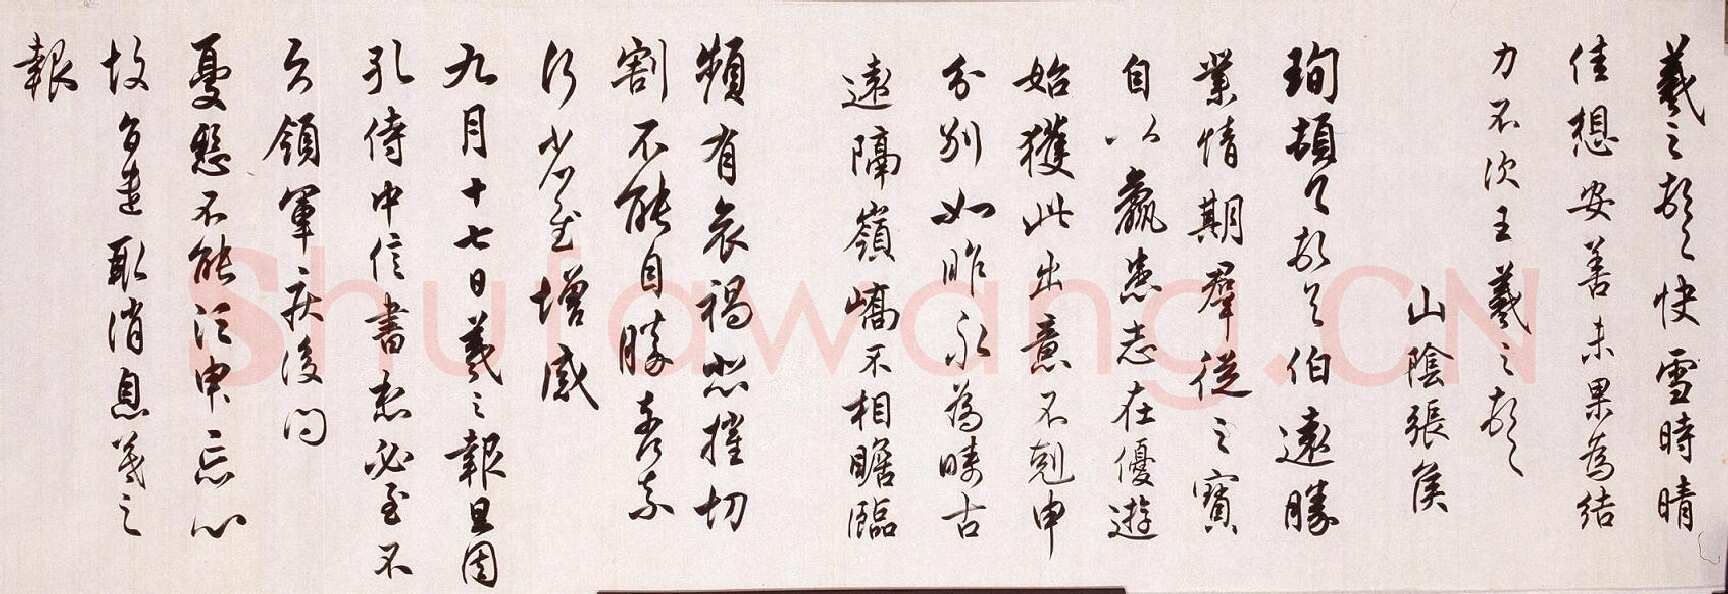 羲之頓首快雪時晴
佳想安善未果為結
力不次王羲之頓首
山陰張侯
珣頓首頓首伯遠勝
業情期群從之寶
自以羸患志在優遊
始獲此出意不剋申
分別如昨永為疇古
遠隔嶺嶠不相瞻臨
頻有哀禍悲摧切
割不能自勝奈何奈
何省慰增感
九月十七日羲之報且因
孔侍中信書想必至不
知領軍疾後問
憂懸不能須臾忘心
故旨遣取消息羲之
報
Shufawang.CN